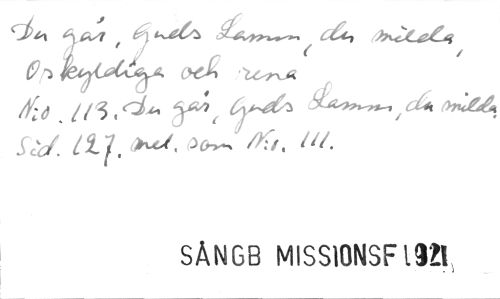 Du går, Guds Lamm, du milda,
Oskyldiga och rena
N:o. 113. Du går, Guds Lamm, du milda.
Sid. 127. mel. som N:o. 111.
SÅNGB MISSIONSF 1921